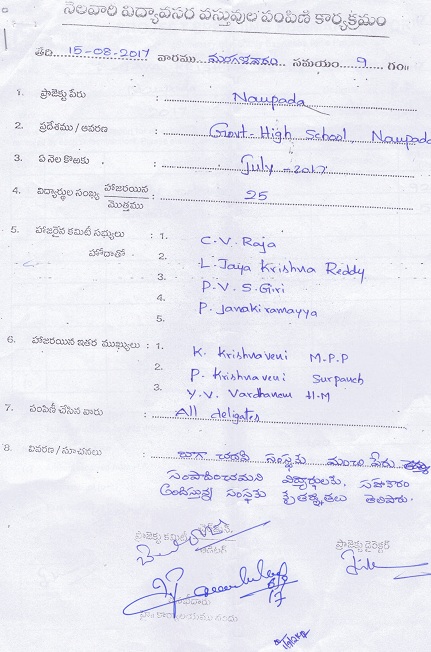 నెలవారి విద్యావసర వస్తువుల పంపిణీ కార్యక్రమం
తేది 15-08-2017 వారము మంగళవారం సమయం 9 గం॥
1. ప్రాజెక్టు పేరు : Naupada
2. ప్రదేశము / ఆవరణ : Govt-High School, Naupada
3. ఏ నెల కొఱకు : July-2017
4. విద్యార్థుల సంఖ్య హాజరయిన / మొత్తము : 25
5. హాజరైన కమిటీ సభ్యులు : 1. C.V. Raja
హోదాతో 2. L. Jaya Krishna Reddy
3. P.V.S. Giri
4. P. Janakiramayya
5.
6. హాజరయిన ఇతర ముఖ్యులు : 1. K. Krishnaveni M.P.P
2. P. Krishnaveni Surpanch
3. Y.V. Vardhanem H.M
7. పంపిణీ చేసిన వారు : All deligates
8. వివరణ / సూచనలు : బాగా చదివి సంస్థకు మంచి పేరు
సంపాదించమని విద్యార్థులకు, సహకారం
అందిస్తున్న సంస్థకు కృతజ్ఞతలు తెలిపారు.
ప్రాజెక్టు కమిటీ
ప్రాజెక్టు డైరెక్టర్